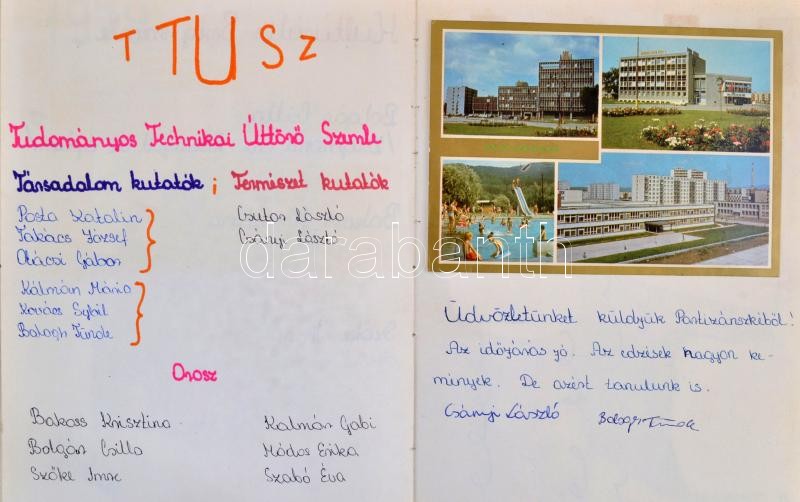 TTUSZ
Tudományos Technikai Úttörő Szemle
Társadalom kutatók ; Természet kutatók
Posta Katalin
Takács József
Csutor László
Csányi László
Gábor
Kálmán Mária
Kovács Sybil
Balogh Tünde
Orosz
Bakoss Krisztina
Bolgár Csilla
Szőke Imre
Kálmán Gabi
Módos Erika
Szabó Éva
Üdvözletünket küldjük Partizánszkiból!
Az időjárás jó. Az edzések nagyon ke-
mények. De azért tanulunk is.
Csányi László Balogh Tünde
darabanth